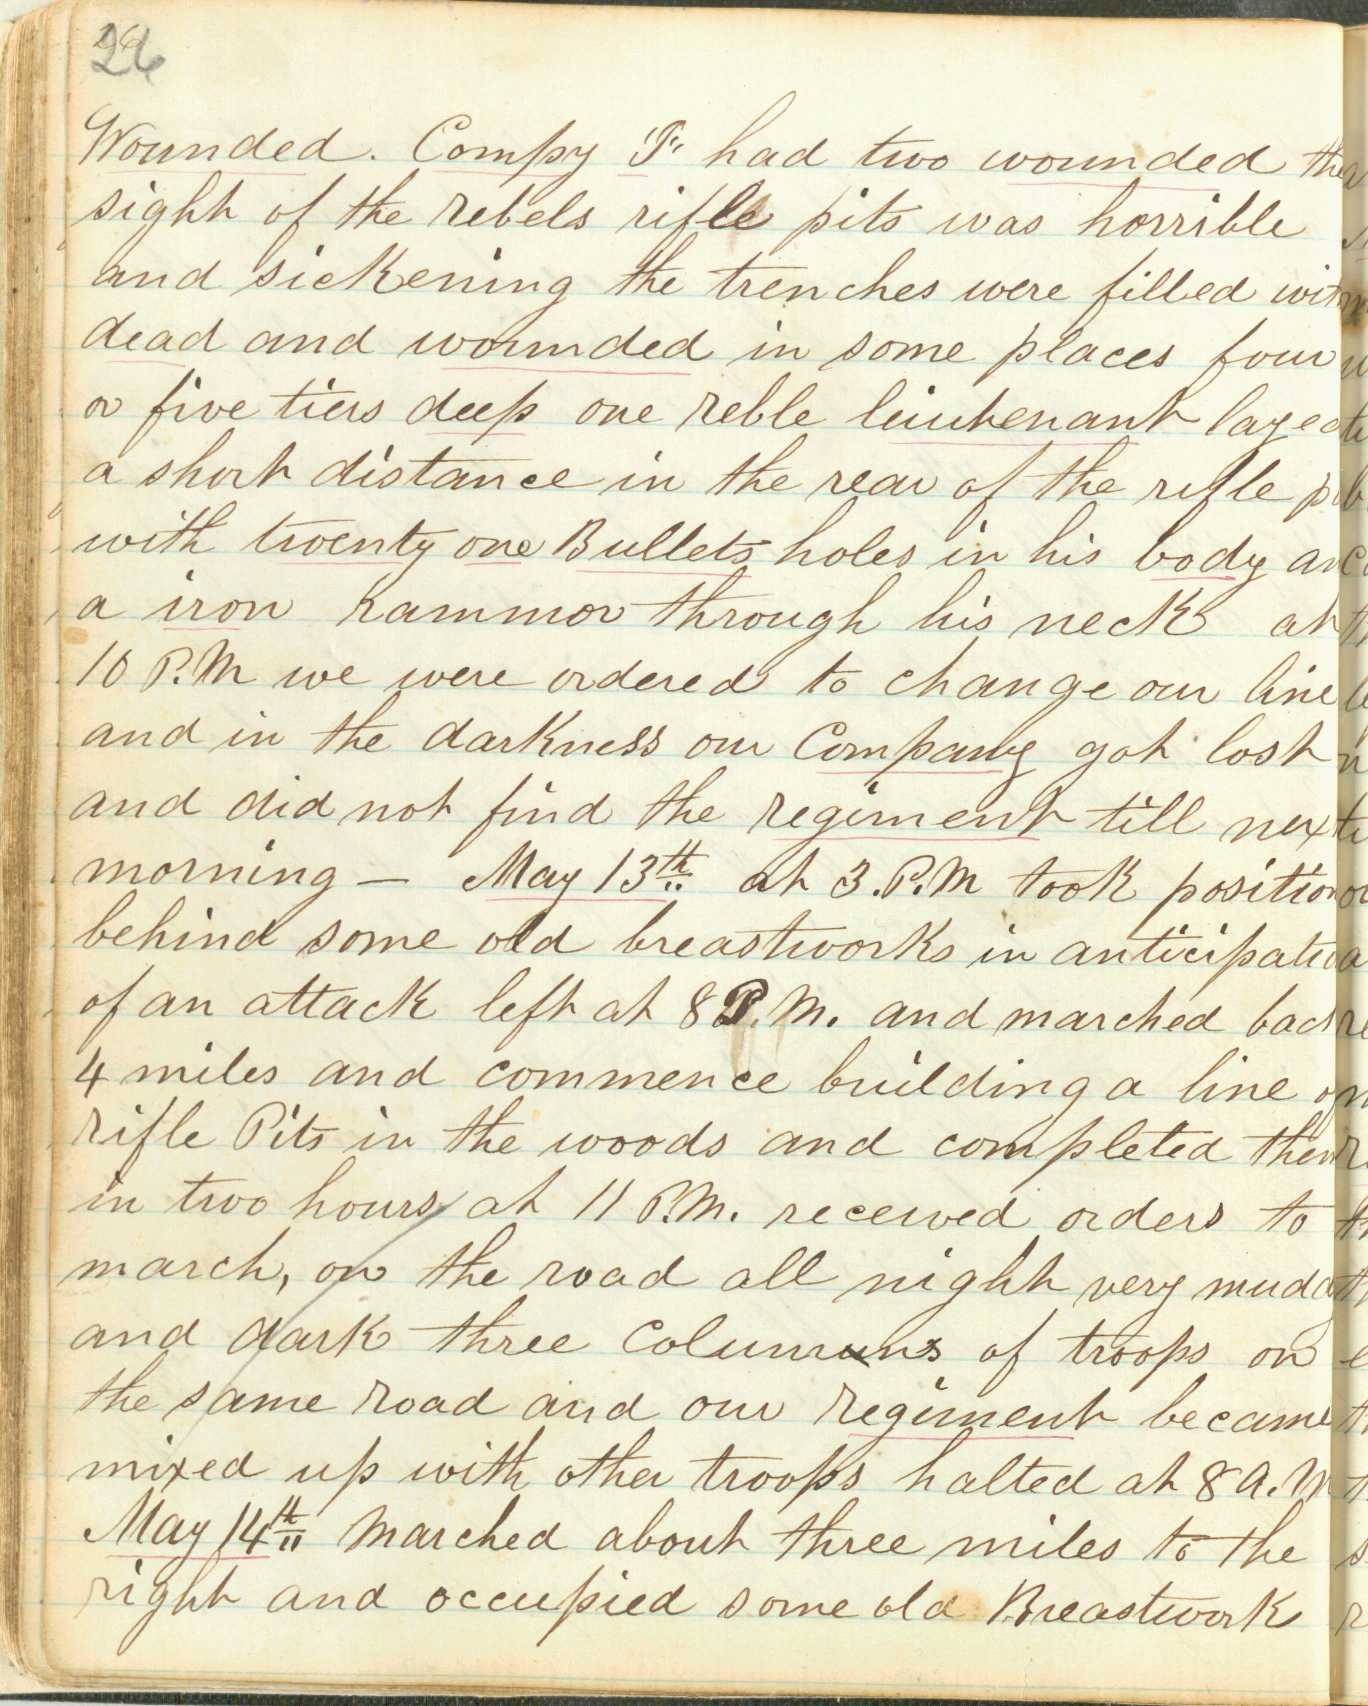 26
Wounded. Compy "F" had two wounded the
sight of the rebels rifle pits was horrible
and sickening the trenches were filled with
dead and wounded in some places four
or five tiers deep one reble leiutenant layed
a short distance in the rear of the rifle
with twenty one Bullets holes in his body
a iron rammor through his neck at
10 P.M we were ordered to change our line
and in the darkness our Company got lost
and did not find the regiment till next
morning — May 13th at 3.P.M took position
behind some old breastworks in anticipation
of an attack left at 8 P.M. and marched back
4 miles and commence building a line of
rifle Pits in the woods and completed them
in two hours at 11 P.M. received orders to
march, on the road all night very muddy
and dark three columns of troops on
the same road and our regiment became
mixed up with other troops halted at 8 A.M
May 14th Marched about three miles to the
right and occupied some old Breastwork